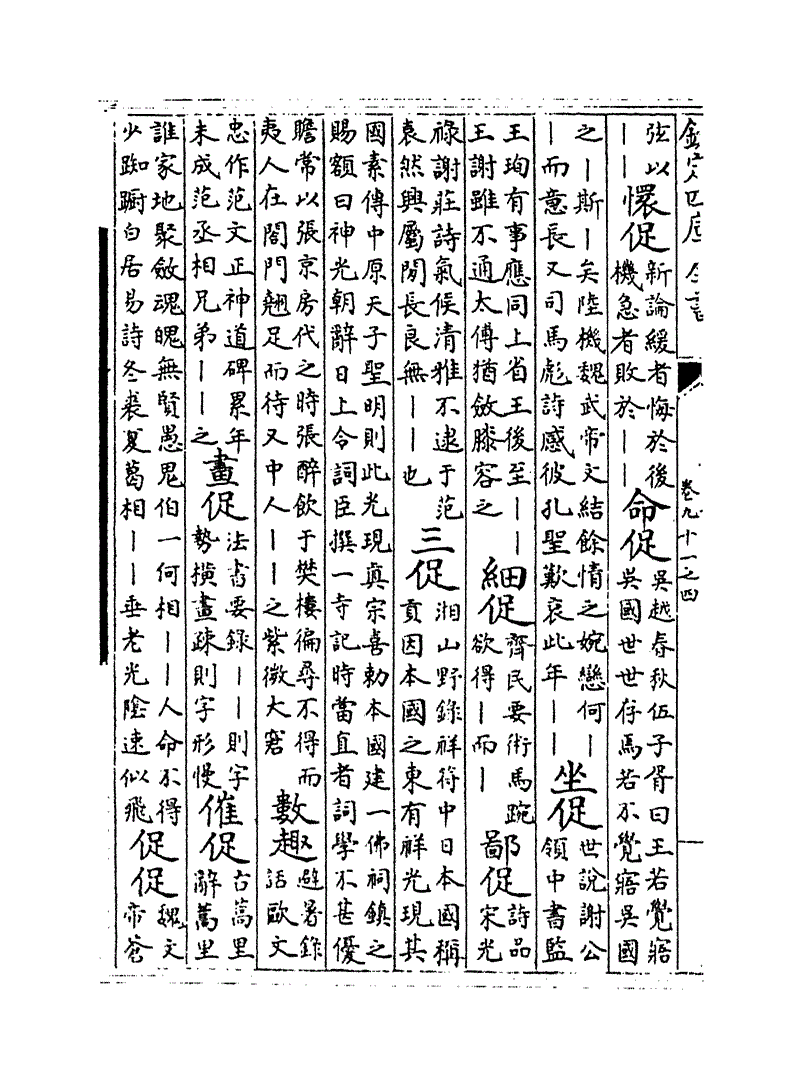 欽定四庫全書 卷九十一之四
弦以
——
懷促
新論緩者悔於後
機急者敗於——
命促
吳越春秋伍子胥曰王若覺寤
吳國世世存焉若不覺寤吳國
之—斯—矣陸機魏武帝文結餘情之婉戀何—
—而意長又司馬彪詩感彼孔聖歎哀此年——
坐促
世說謝公
領中書監
王珣有事應同上省王後至——
王謝雖不通太傅猶斂膝容之
細促
齊民要術馬踠
欲得—而—
鄙促
詩品
宋光
祿謝莊詩氣候清雅不逮于范
袁然興屬閒長良無——也
三促
湘山野錄祥符中日本國稱
貢因本國之東有祥光現其
國素傳中原天子聖明則此光現真宗喜勅本國建一佛祠鎮之
賜額曰神光朝辭日上令詞臣撰一寺記時當直者詞學不甚優
贍常以張京房代之時張醉飲于樊樓徧尋不得而
夷人在閤門翹足而待又中人——之紫微大窘
數趣
避暑錄
話歐文
忠作范文正神道碑累年
未成范丞相兄弟——之
畫促
法書要錄——則字
勢橫畫疎則字形慢
催促
古蒿里
辭蒿里
誰家地聚斂魂魄無賢愚鬼伯一何相——人命不得
少踟蹰白居易詩冬裘夏葛相——垂老光陰速似飛
促促
魏文
帝蒼